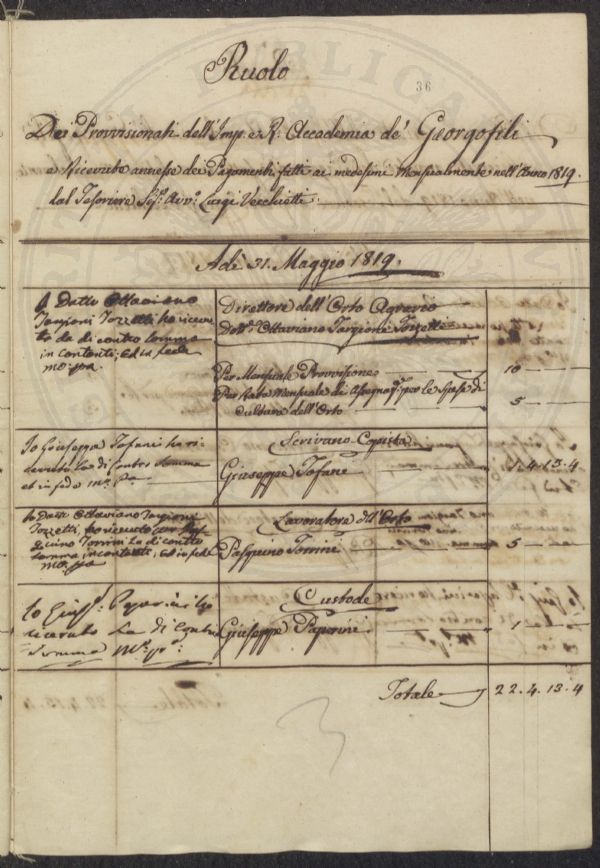 Ruolo
36
Dei Provvisionati dell'Imp. e R. Accademia de' Georgofili
e Ricevute annesse dei Pagamenti fatti ai medesimi Mensualmente nell'Anno 1819.
dal Tesoriere Sig. Avv. Luigi Vecchietti
Adì 31. Maggio 1819.
Io Dott. Ottaviano
Targioni Tozzetti ho ricevu-
to la di contro somma
in contanti, ed in fede
mo: pa
Direttore dell'Orto Agrario
Dott. Ottaviano Targioni Tozzetti
Per Mensuale Provvisione 10
Per Rata Mensuale di Assegna per le Spese di
Cultura dell'Orto 5
Io Giuseppe Tofani ho ri-
cevuto la di contro somma
ed in fede mo. pa.
Scrivano Copista
Giuseppe Tofani 1.4.13.4
Io Dott. Ottaviano Targioni
Tozzetti, ho ricevuto per
la di contro
somma in contanti, ed in fede
mo: pa
Lavoratore dell'Orto
Pasquino Torrini 5
Io Gius. Paperini ho
ricevuto La di Contro
Somma Mo. pr.
Custode
Giuseppe Paperini 1
Totale 22.4.13.4
3